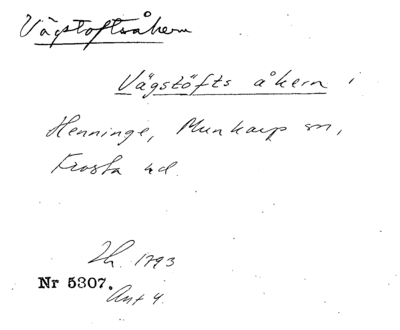 Vägstoftsåkern
Vägstöfts åkern i
Henninge, Munkarp sn,
Frosta hd.
Lh. 1793
Nr 5307.
Ant 4.